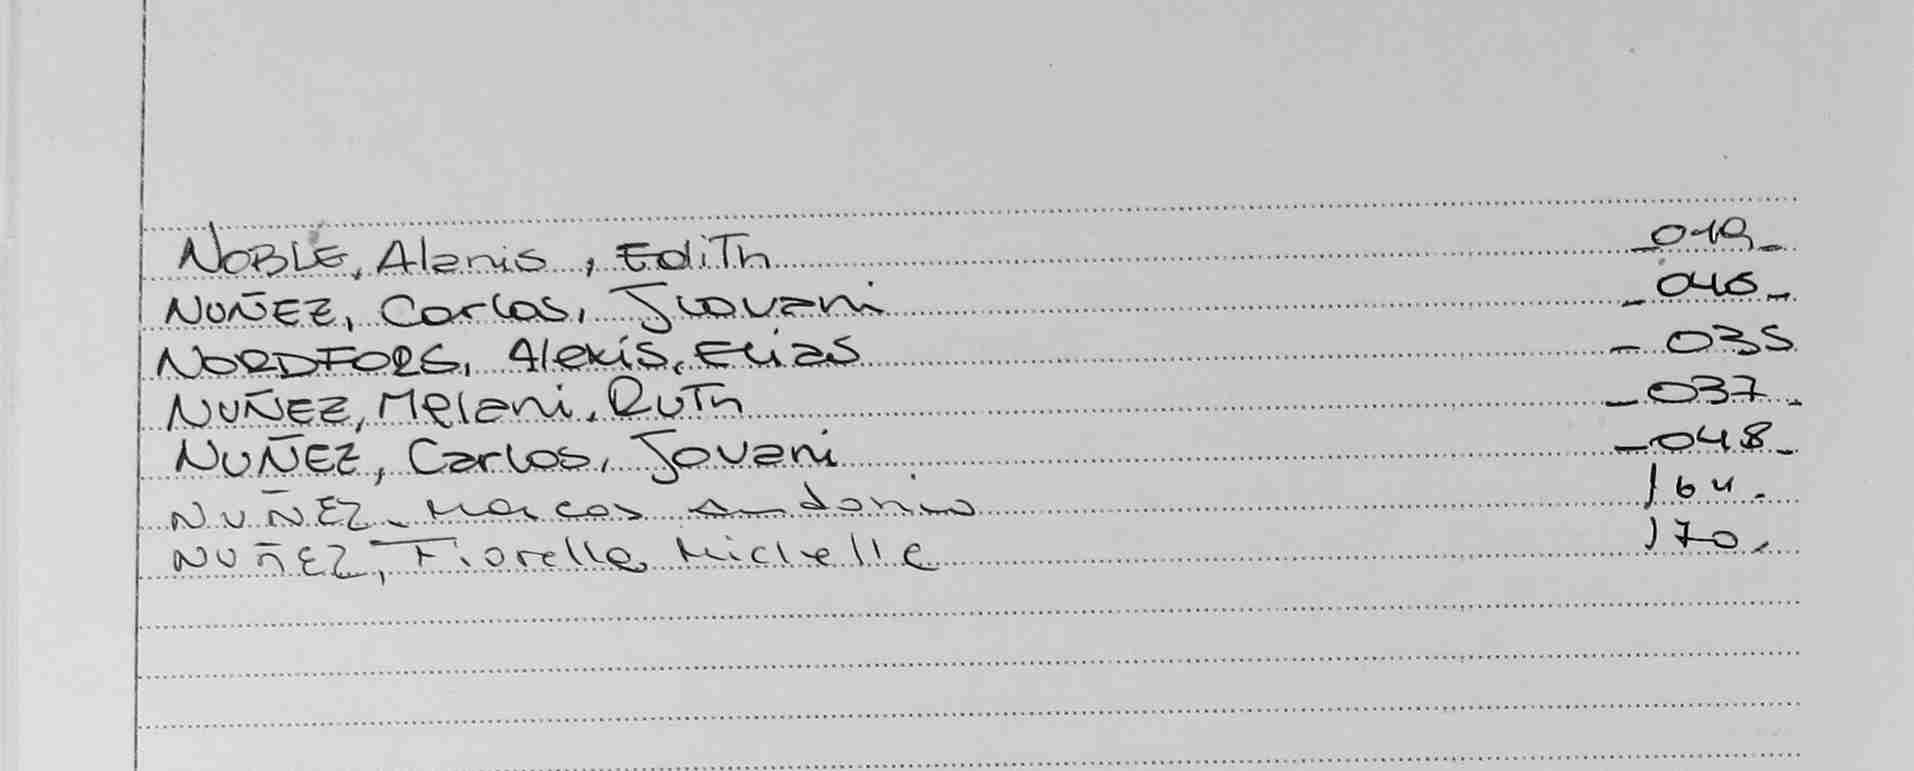 NOBLE, Alanis, Edith _019_
NUÑEZ, Carlos, Jiovani _046_
NORDFORS, Alexis, Elias _ 035
NUÑEZ, Melani, Ruth _037_
NUÑEZ, Carlos, Jovani _048_
NUÑEZ Marcos Antonio 164.
NUÑEZ, Fiorella Michelle 170.